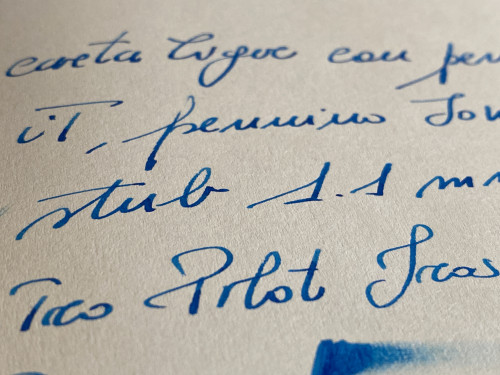 carta con pen
iT, pennino Jow
stub 1.1 m
Tro Pilot Iros